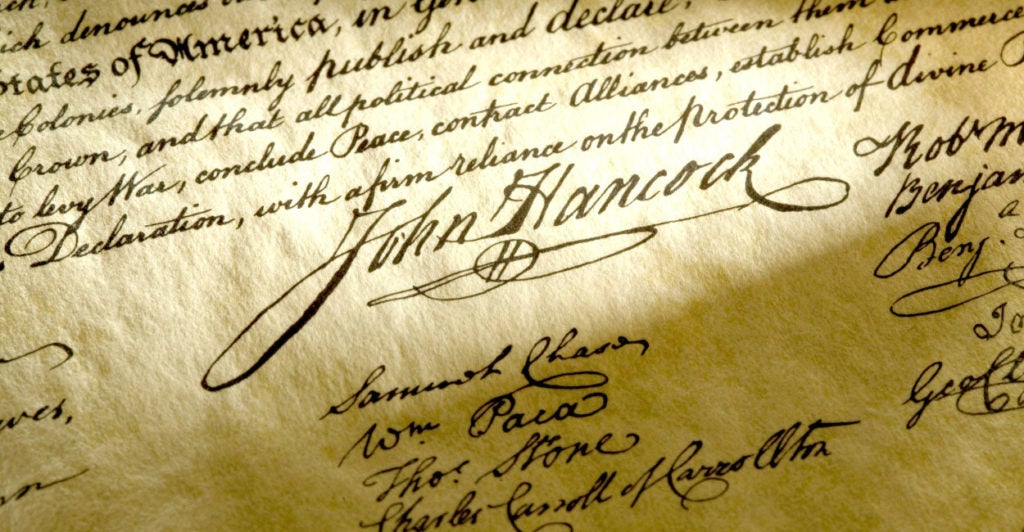 ich denounces
States of America, in Gen
Colonies, solemnly publish and declare,
Crown, and that all political connection between them
to levy War, conclude Peace, contract Alliances, establish Commerce
Declaration, with a firm reliance on the Protection of divine
John Hancock
Samuel Chase
Wm Paca
Thos. Stone
Charles Carroll of Carrollton
Rob M
Benjam
Benj.
Geo